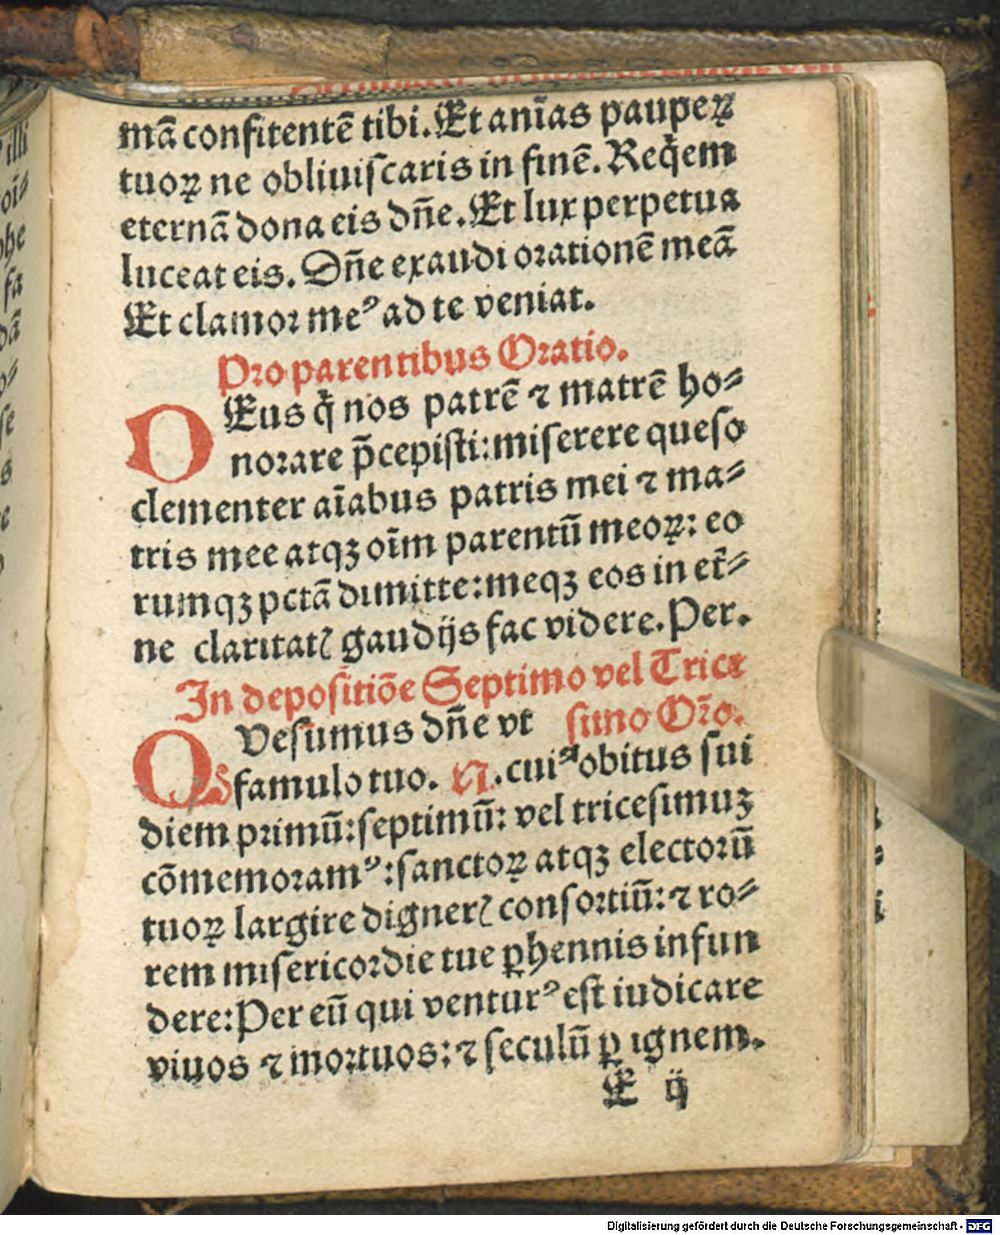 mā confitentē tibi. Et anīas pauperꝝ
tuoꝝ ne obliuiſcaris in finē. Reqͥem
eternā dona eis dñe. Et lux perpetua
luceat eis. Dñe exaudi orationē meā
Et clamor meꝰ ad te veniat.
Pro parentibus Oratio.
DEus qͥ nos patrē ⁊ matrē ho⸗
norare p̄cepiſti: miſerere queſo
clementer aīabus patris mei ⁊ ma⸗
tris mee atqꝫ oīm parentū meoꝝ: eo
rumqꝫ pctā dimitte: meqꝫ eos in et̄⸗
ne claritatꝭ gaudijs fac videre. Per.
In depoſitiōe Septimo vel Trice
ſimo Or̄o.
QVeſumus dñe vt
famulo tuo. N. cuiꝰ obitus ſui
diem primū: ſeptimū: vel triceſimuꝫ
cōmemoramꝰ: ſanctoꝝ atqꝫ electorū
tuoꝝ largire dignerꝭ conſortiū: ⁊ ro⸗
rem miſericordie tue ꝑhennis infun
dere: Per eū qui venturꝰ eſt iudicare
viuos ⁊ mortuos: ⁊ ſeculū ꝑ ignem.
E ij
illi
oī⸗
phe
fa
dā
o⸗
ſe
s
e
Digitalisierung gefördert durch die Deutsche Forschungsgemeinschaft - DFG